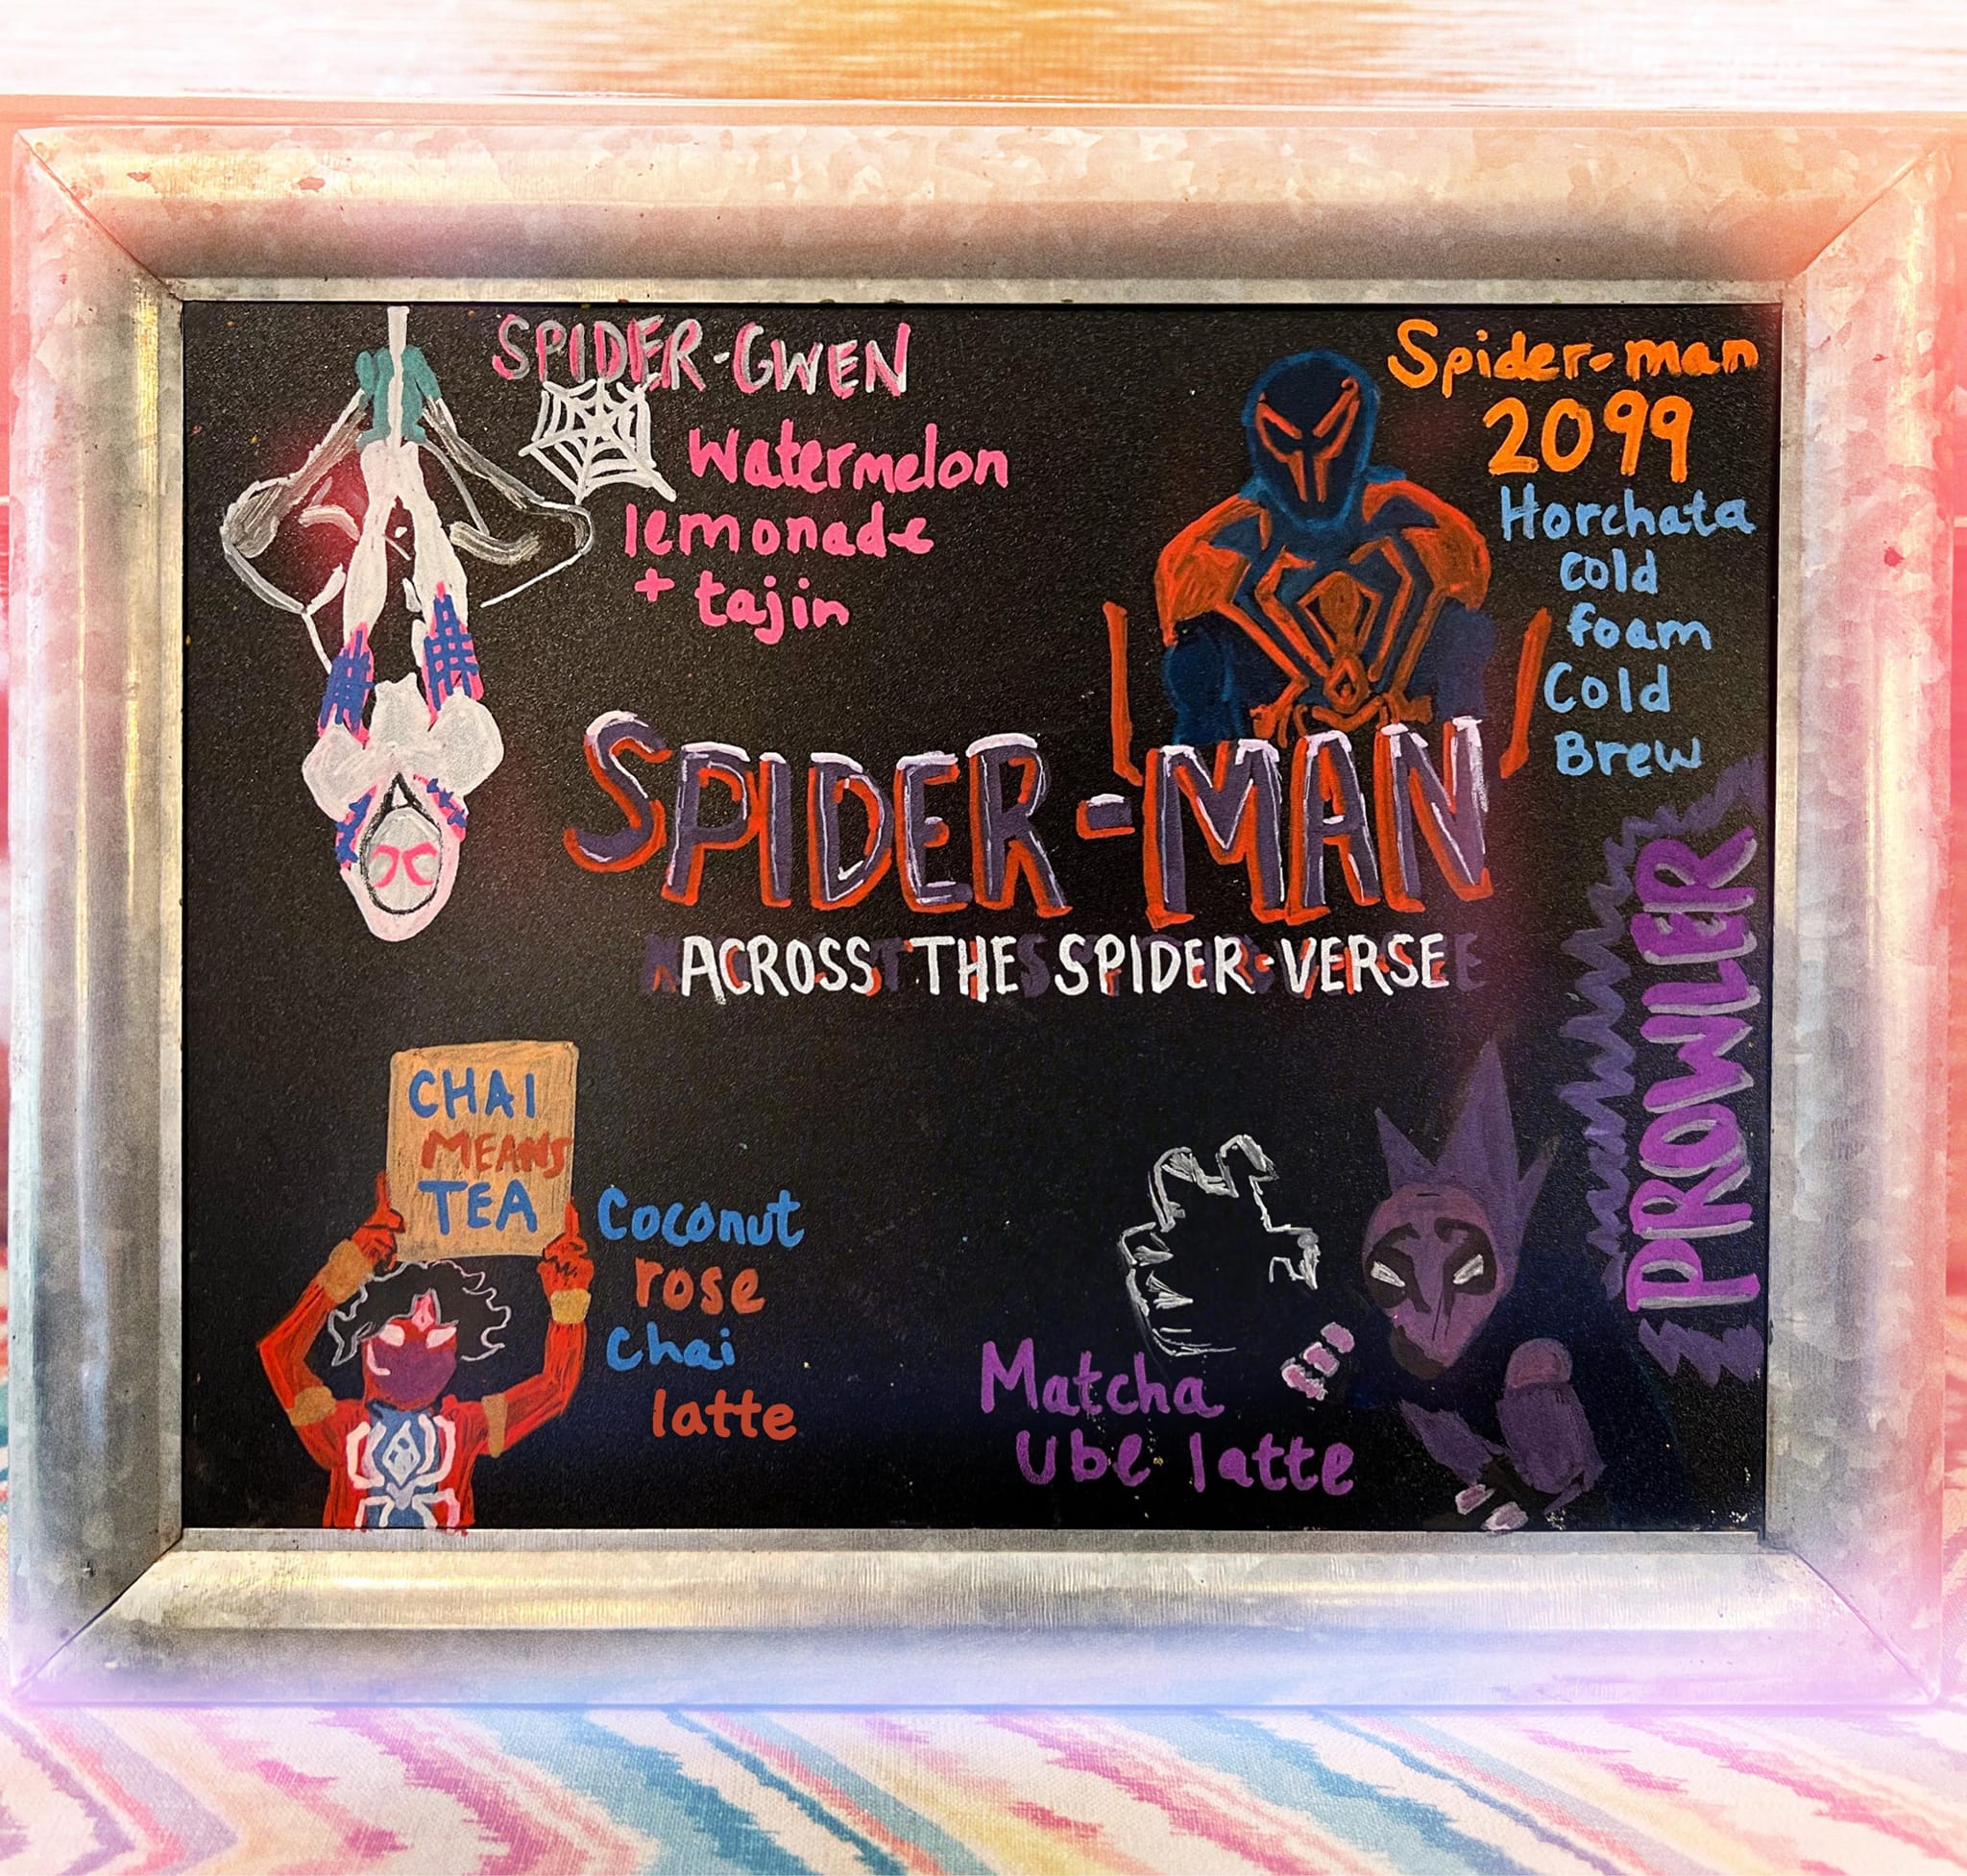 SPIDER-GWEN
Watermelon
lemonade
+ tajin
Spider-man
2099
Horchata
cold
foam
Cold
Brew
SPIDER-MAN
ACROSS THE SPIDER-VERSE
PROWLER
CHAI
MEANS
TEA
Coconut
rose
Chai
latte
Matcha
Ube latte